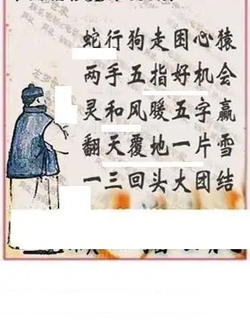 蛇行狗走困心猿
两手五指好机会
灵和风暖五字赢
翻天覆地一片雪
一三回头大团结